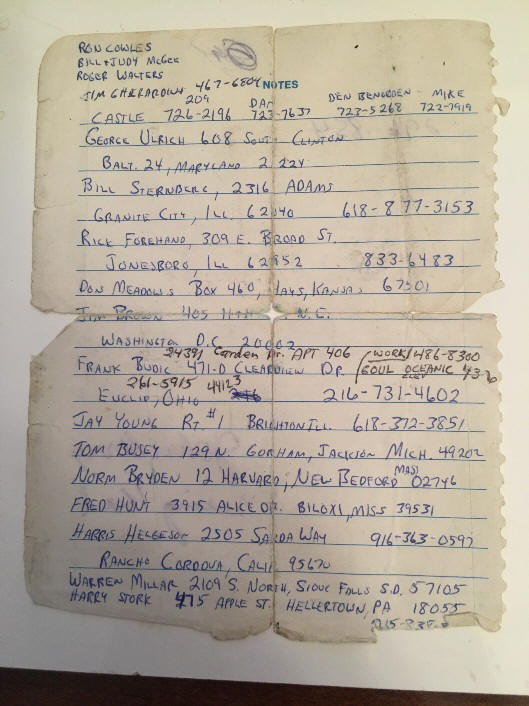 RON COWLES
BILL + JUDY MCGEE
ROGER WALTERS
JIM GHERARDINI 467-6804 NOTES
209 DAN DEN BENGDEN - MIKE
CASTLE 726-2196 723-7637 723-5268 722-7919
GEORGE ULRICH 608 SOUTH CLINTON
BALT. 24, MARYLAND 2 224
BILL STERNBERG, 2316 ADAMS
GRANITE CITY, ILL. 62040 618-877-3153
RICK FOREHAND, 309 E. BROAD ST.
JONESBORO, ILL 62952 833-6483
DON MEADOWS BOX 460, HAYS, KANSAS 67601
JIM BROWN 405 11TH N.E.
WASHINGTON D.C. 20002
24391 Garden Dr. APT 406 (WORK) 486-8300
FRANK BUDIC 471-D CLEARVIEW DR. GOUL OCEANIC
261-5915 44123
EUCLID, OHIO 216-731-4602
JAY YOUNG RT. #1 BRIGHTON ILL. 618-372-3851
TOM BUSEY 129 N. GORHAM, JACKSON MICH. 49202
NORM BRYDEN 12 HARVARD, NEW BEDFORD (MAS) 02746
FRED HUNT 3915 ALICE DR. BILOXI, MISS 39531
HARRIS HELGESON 2505 SARDA WAY 916-363-0597
RANCHO CORDOVA, CALIF 95670
WARREN MILLAR 2109 S. NORTH, SIOUX FALLS S.D. 57105
HARRY STORK 475 APPLE ST. HELLERTOWN, PA 18055
215-838-